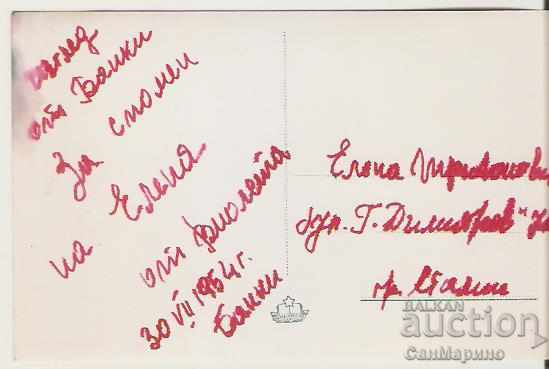 изглед
от Банки
За спомен
на Елена
от Виолета
30 VII 1954 г.
Банки
Елена
бул. "Г. Димитров"
гр. Сталин
BALKAN
auction
СанМарино